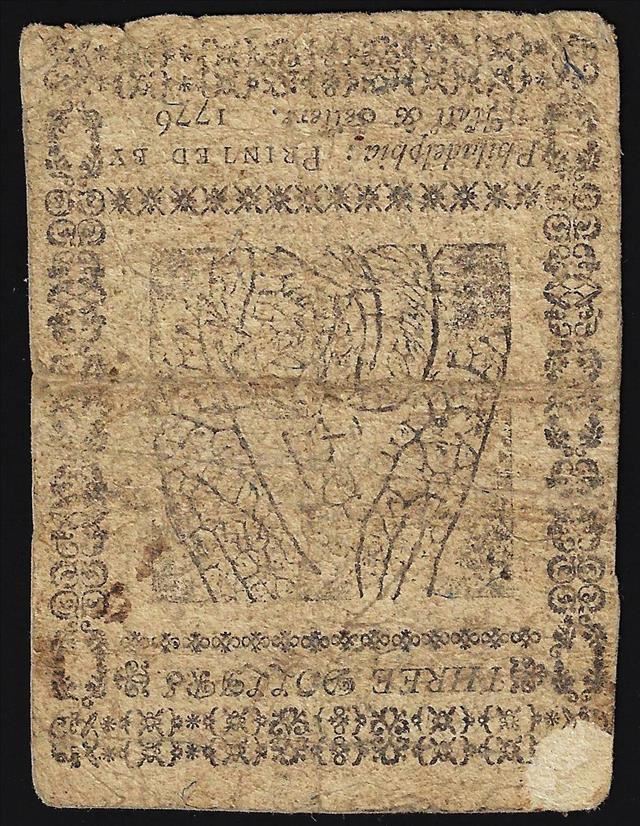 THREE DOLLARS
Philadelphia: PRINTED BY
Hall & Sellers.
1776